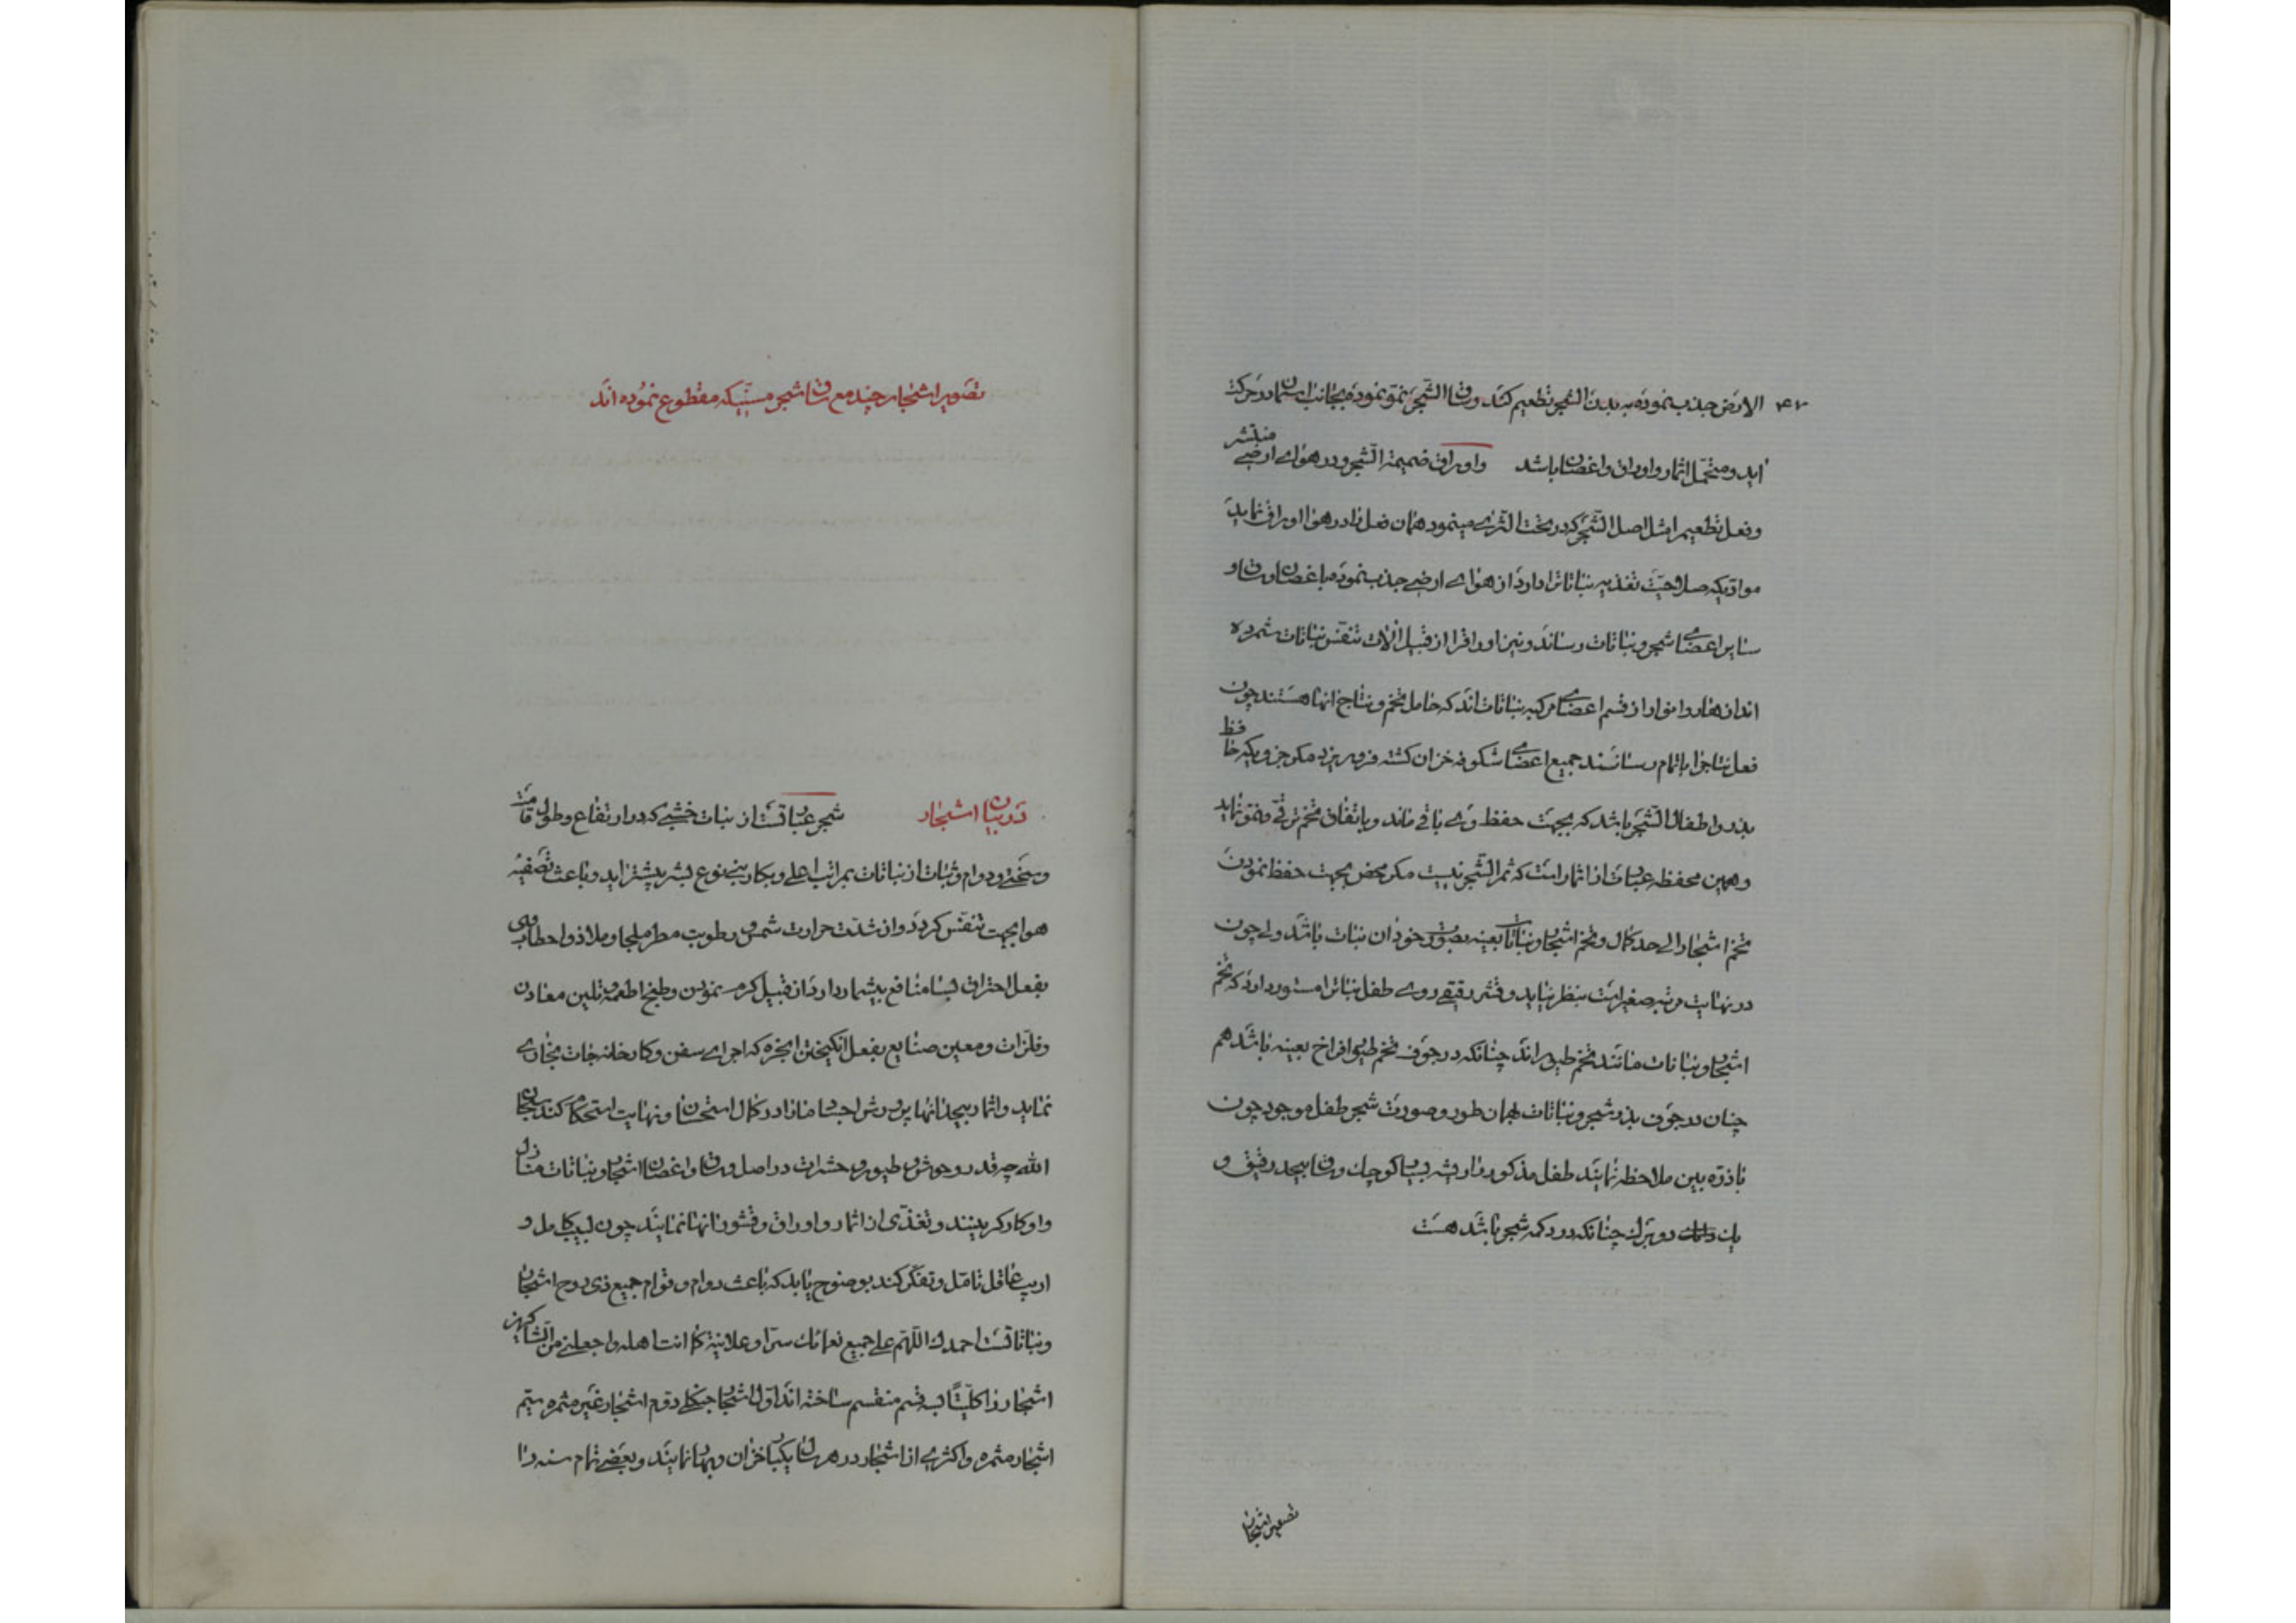 الارض جذب نموده به بدن الشجر تطعیم کند و ساق الشجر نمو نموده بجانب آسمان در حرکت
اید و متحمل اثمار و اوراق و اغصان باشد و اوراق ضمیمة الشجر و در هوای ارضی منتشر
و فعل تطعیم را مثل اصل الشجر که در تحت الثری مینمود همان فعل را در هوا اوراق نماید
موادیکه صلاحیت تغذیه نباتاترا دارد از هوای ارضی جذب نموده باغصان و ساق و
سایر اعضای شجر و نباتات رساند و نیز اوراقرا از قبیل آلات تنفس نباتات شمرده
اند ازهار و انوار از قسم اعضای مرکبه نباتات‌اند که حامل تخم و نتاج انها هستند چون
فعل نتاجرا باتمام رسانند جمیع اعضای شکوفه خزان کشته فرو ریزد مکر جزویکه حافظ
بذر و اطفال الشجر باشد که بجهت حفظ وی باقی ماند و باتفاق تخم ترقی و نمو نماید
و همین محفظه عبارت از اثمار است که ثمر الشجر نیست مکر محض بجهت حفظ نمودن
تخم اشجار الی حد کمال و تخم اشجار و نباتات بعینه بصورت خود ان نبات باشد ولی چون
در نهایت مرتبه صغیر است بنظر نیاید و قشر رقیقی روی طفل نباترا مستور دارد که تخم
اشجار و نباتات مانند تخم طیور اند چنانکه در جوف تخم طیور افراخ بعینه باشد هم
چنان در جوف بذر شجر و نباتات بهمان طور و صورت شجر طفل موجود چون
با ذره بین ملاحظه نمایند طفل مذکور را ریشه بسیار کوچک و ساق بیحد رقیق و
یک دو برک چنانکه در دکمه شجر باشد هست
تصویر اشجار
تصویر اشجار چند مع ساق شجر مسنیکه مقطوع نموده اند
در بیان اشجار شجر عبارتست از نبات خشبی که در ارتفاع و طول قامت
و سختی و دوام و ثبات از نباتات بمراتب اعلی و بکار بنی نوع بشر بیشتر اید و باعث تصفیه
هوا بجهت تنفس کردد و از شدت حرارت شمس و رطوبت مطر ملجا و ملاذ و احطاب وی
بفعل احتراق بسا منافع بیشمار دارد از قبیل کرم نمودن و طبخ اطعمه و تلیین معادن
و فلزات و معین صنایع بفعل انکیختن ابخره که اجرای سفن و کارخانه جات بخاری
نماید و اثمار بیحد انها پرورش اجساد ما را در کمال استحسان و نهایت استحکام کند سبحان
الله چه قدر وحوش و طیور و حشرات در اصل و ساق و اغصان اشجار و نباتات منازل
و اوکار کزینند و تغذی از اثمار و اوراق و قشور انها نمایند چون لبیب کامل و
اریب عاقل تامل و تفکر کند بوضوح یابد که باعث دوام و قوام جمیع ذی روح اشجار
و نباتاتست احمدک اللهم علی جمیع نعمائک سرا و علانیة کما انت اهله و اجعلنی من الشاکرین
اشجار را کلیتاً بسه قسم منقسم ساخته اند اول اشجار جنکلی دوم اشجار غیر مثمره سیم
اشجار مثمره و اکثری از اشجار در هر سال یکبار خزان و بهار نمایند و بعضی تمام سنه را